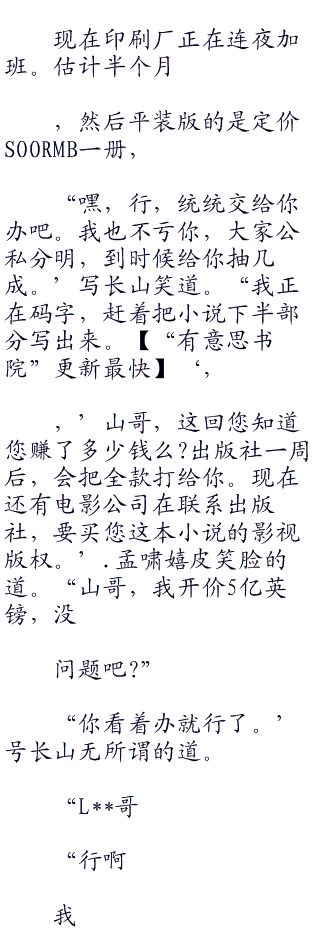 现在印刷厂正在连夜加
班。估计半个月
，然后平装版的是定价
SOORMB一册，
“嘿，行，统统交给你
办吧。我也不亏你，大家公
私分明，到时候给你抽几
成。’写长山笑道。“我正
在码字，赶着把小说下半部
分写出来。【“有意思书
院”更新最快】‘，
，’山哥，这回您知道
您赚了多少钱么?出版社一周
后，会把全款打给你。现在
还有电影公司在联系出版
社，要买您这本小说的影视
版权。’.孟啸嬉皮笑脸的
道。“山哥，我开价5亿英
镑，没
问题吧?”
“你看着办就行了。’
号长山无所谓的道。
“L**哥
“行啊
我